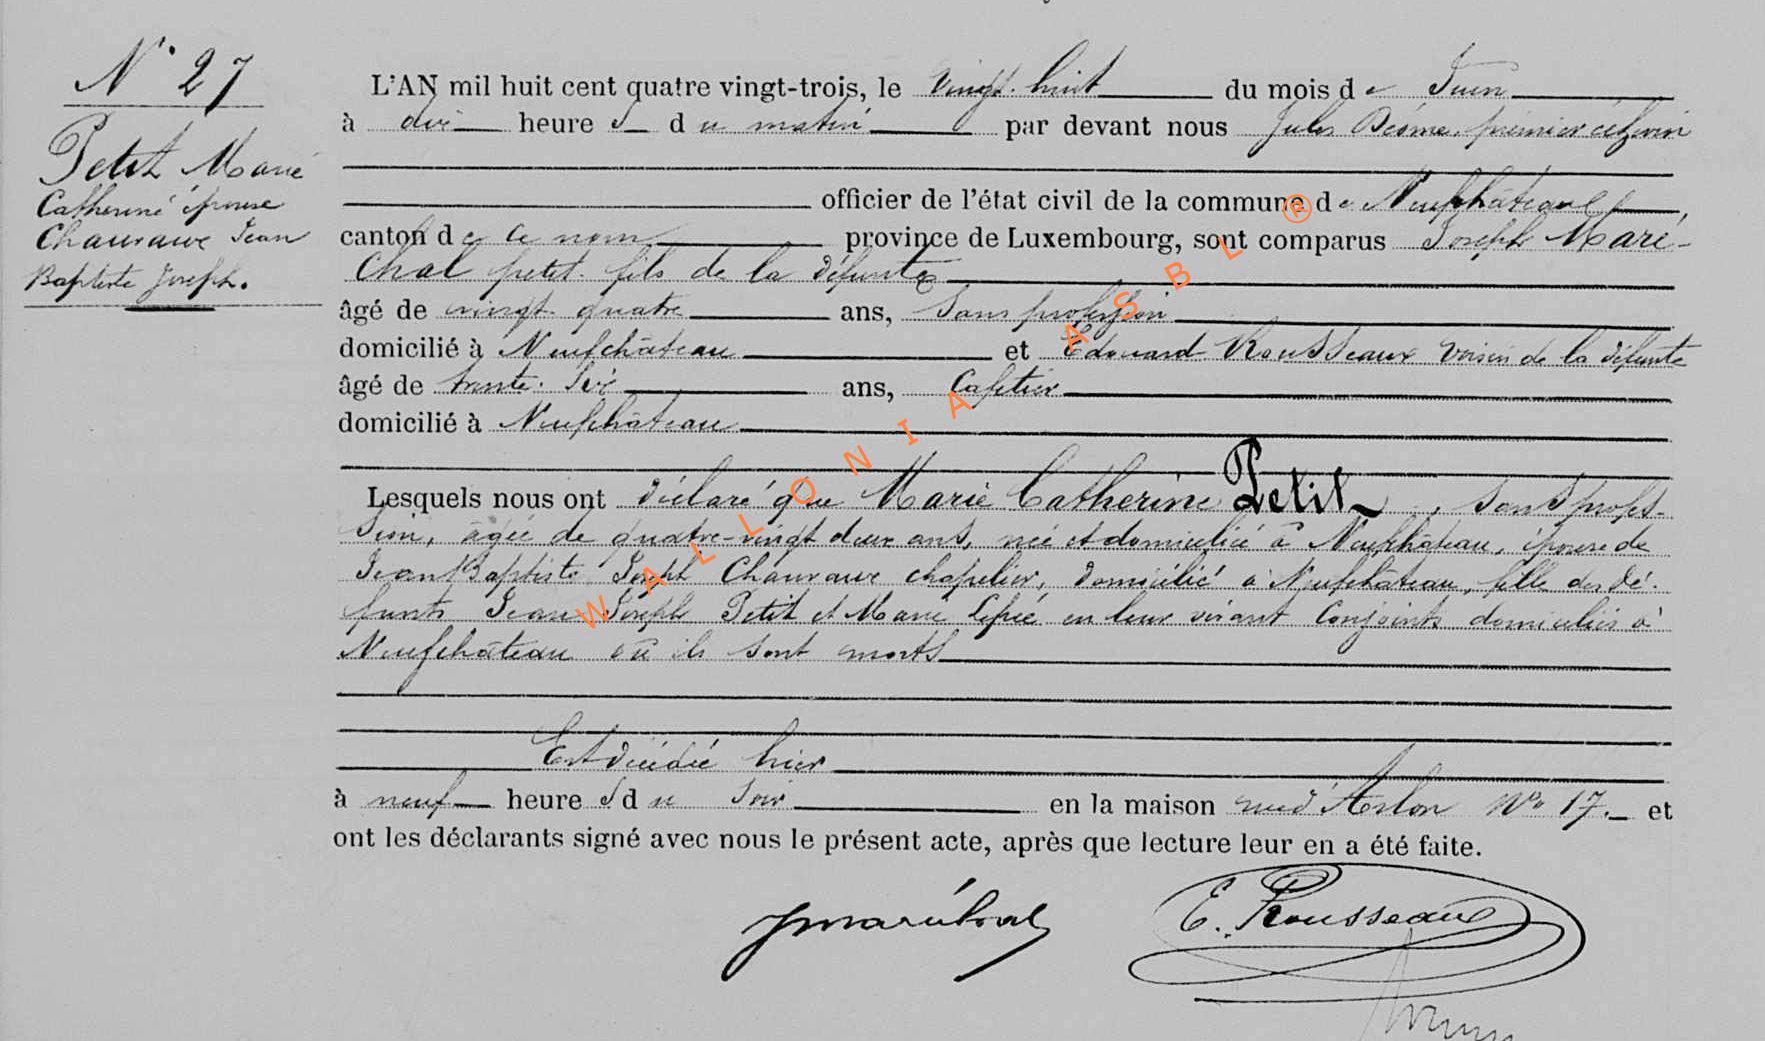 N° 27
Petit Marie
Catherine épouse
Chauvaux Jean
Baptiste Joseph.
L'AN mil huit cent quatre vingt-trois, le vingt-huit du mois de Juin
à dix heures du matin par devant nous Jules premier échevin
officier de l'état civil de la commune de Neufchâteau,
canton de ce nom province de Luxembourg, sont comparus Joseph Maré-
chal petit-fils de la défunte
âgé de vingt-quatre ans, Sans profession
domicilié à Neufchâteau et Edouard Rousseaux voisin de la défunte
âgé de trente-six ans, Cafetier
domicilié à Neufchâteau
Lesquels nous ont déclaré que Marie Catherine Petit, sans profes-
sion, âgée de quatre-vingt deux ans, née et domiciliée à Neufchâteau, épouse de
Jean Baptiste Joseph Chauvaux chapelier, domicilié à Neufchâteau, fille des dé-
funts Jean Joseph Petit et Marie en leur vivant conjoints domiciliés à
Neufchâteau où ils sont morts
Est décédée hier
à neuf heures du soir en la maison rue d'Arlon N° 17. et
ont les déclarants signé avec nous le présent acte, après que lecture leur en a été faite.
JMaréchal
E. Rousseaux
WALLONIA ASBL ®